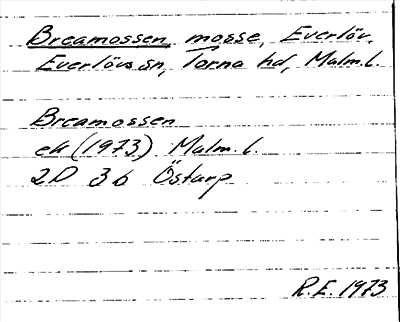 Breamossen, mosse, Everlöv.
Everlövs sn, Torna hd, Malm. l.
Breamossen
ek (1973) Malm. l.
2D 3b Östarp
R.E. 1973